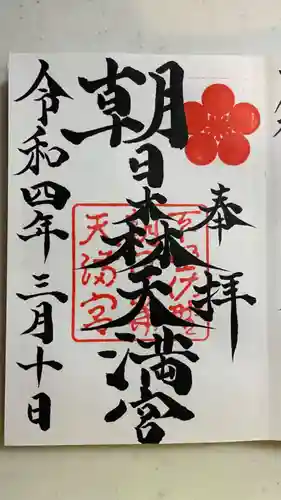 奉拝
朝日森天満宮
天満宮
令和四年三月十日